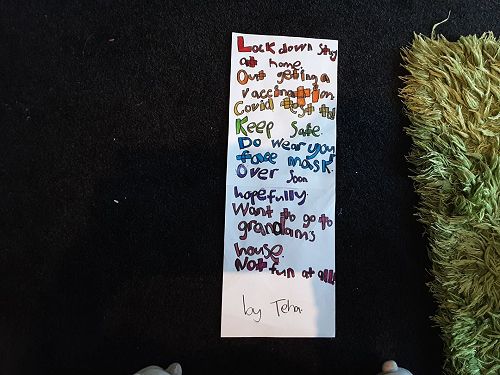 Lockdown stay
at home.
Out geting a
vaccination
Covid test too
Keep safe.
Do wear your
face mask.
Over soon
hopefully
Want to go to
grandam's
house.
Not fun at all!
by Teha.